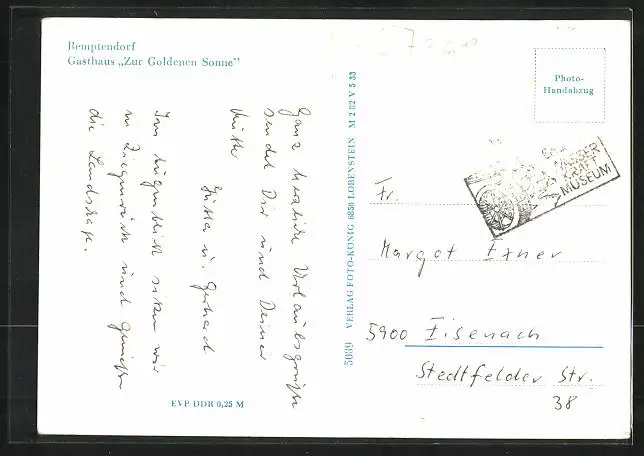 Remptendorf
Gasthaus „Zur Goldenen Sonne"
Photo-
Handabzug
WASSER
KRAFT
MUSEUM
Ganz herzliche Urlaubsgrüße
sendet Dir und Deiner
Mutter
Jutta u. Gerhard
Im Augenblick sitzen wir
in Ziegenrück und genießen
die Landschaft.
5069 VERLAG FOTO-KÖNIG 6850 LOBENSTEIN M 2 82 A 5 33
Fr.
Margot Exner
5900 Eisenach
Stedtfelder Str.
38
EVP DDR 0,25 M